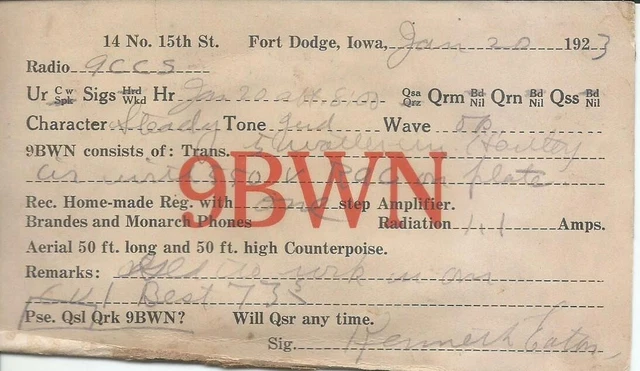 14 No. 15th St. Fort Dodge, Iowa, Jan 20 1923
Radio 9CCS
Ur Cw Spk Sigs Hrd Wkd Hr Jan 20 at Qsa Qrz Qrm Bd Nil Qrn Bd Nil Qss Bd Nil
Character Steady Tone gud Wave
9BWN consists of: Trans. 5 watter in Hartley
cir with on plate
9BWN
Rec. Home-made Reg. with one step Amplifier.
Brandes and Monarch Phones Radiation 1.1 Amps.
Aerial 50 ft. long and 50 ft. high Counterpoise.
Remarks: to work u om
Best 73s
Pse. Qsl Qrk 9BWN? Will Qsr any time.
Sig. Kenneth Eaton